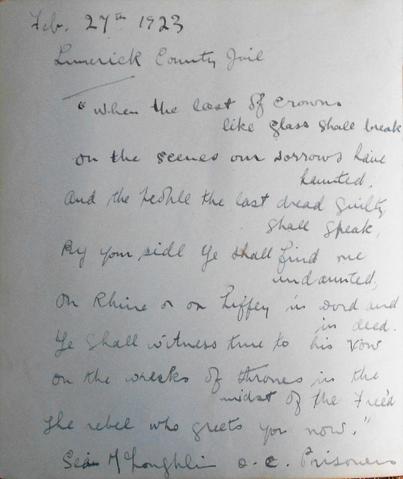 Feb. 27th 1923
Limerick County Jail
"When the last of crowns
like glass shall break
on the scenes our sorrows have
haunted,
and the people the last dread guilty
shall speak,
By your side ye shall find me
undaunted,
On Rhine or on Liffey in word and
in deed.
Ye shall witness true to his vow
on the wrecks of thrones in the
midst of the free'd
The rebel who greets you now."
Seán McLoughlin O.C. Prisoners